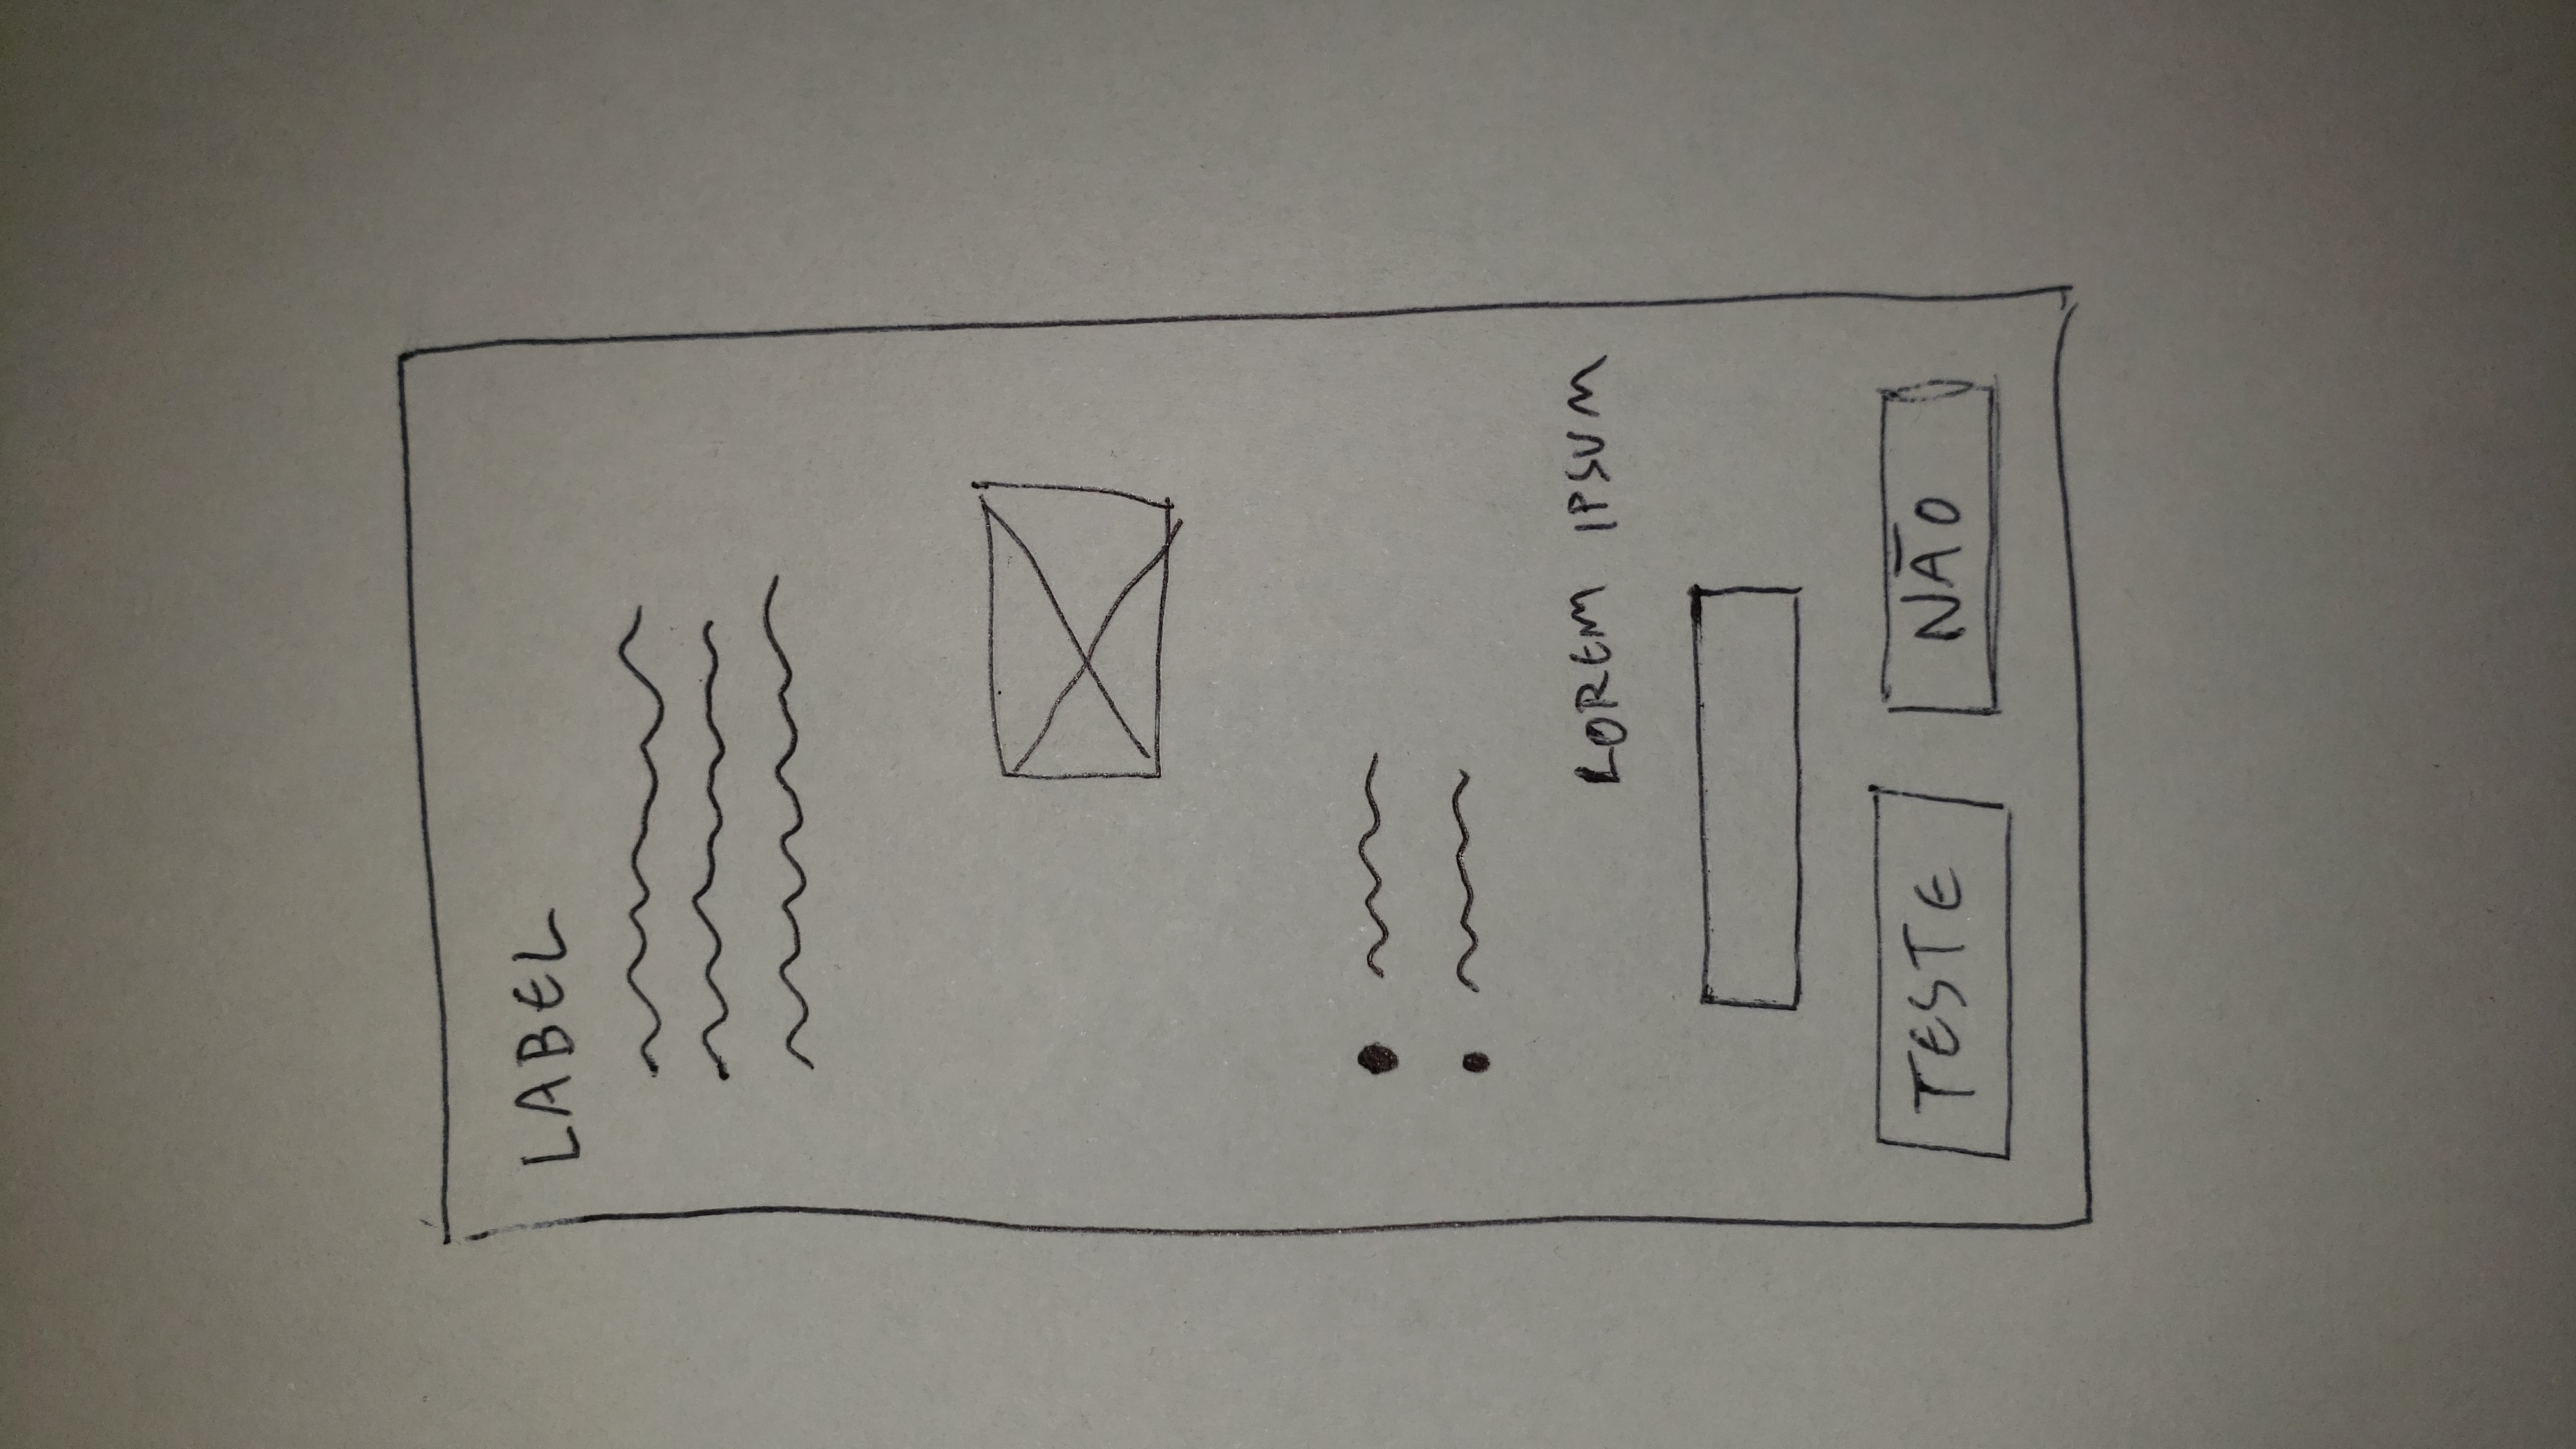 LABEL
LOREM IPSUM
TESTE NÃO